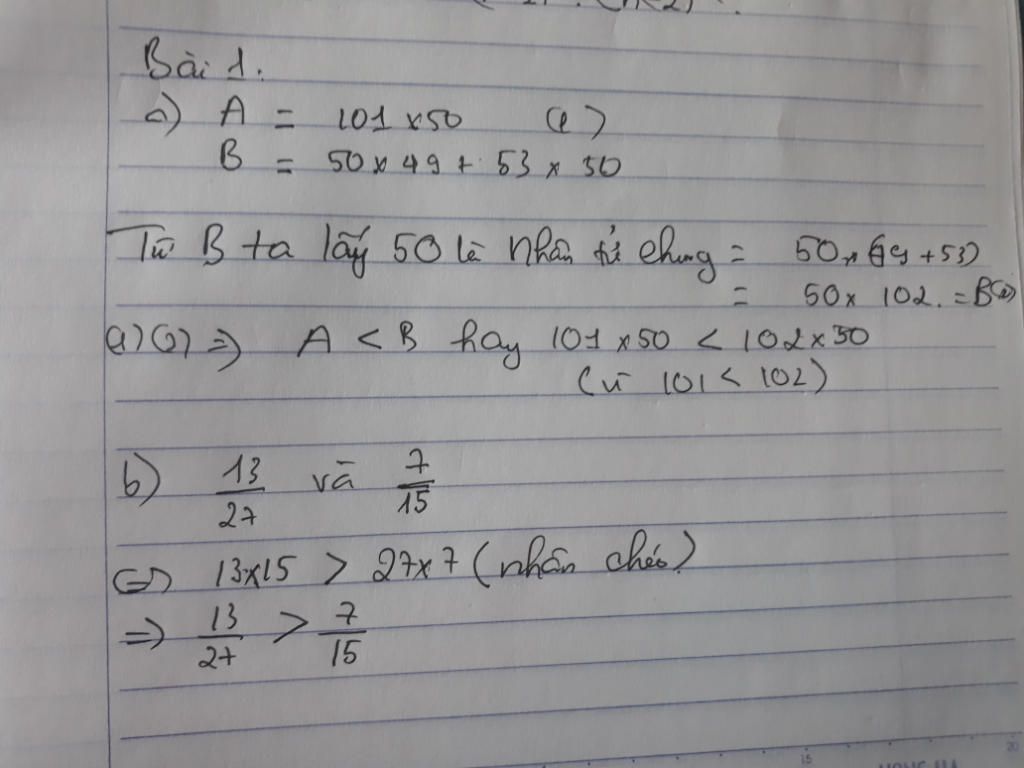 Bài 1.
a) A = 101 x 50 (1)
B = 50 x 49 + 53 x 50
Từ B ta lấy 50 là nhân tử chung = 50 x (49 + 53)
= 50 x 102. = B (2)
(1) (2) => A < B hay 101 x 50 < 102 x 50
(vì 101 < 102)
b) 13/27 và 7/15
<=> 13x15 > 27x7 (nhân chéo)
=> 13/27 > 7/15
15
20